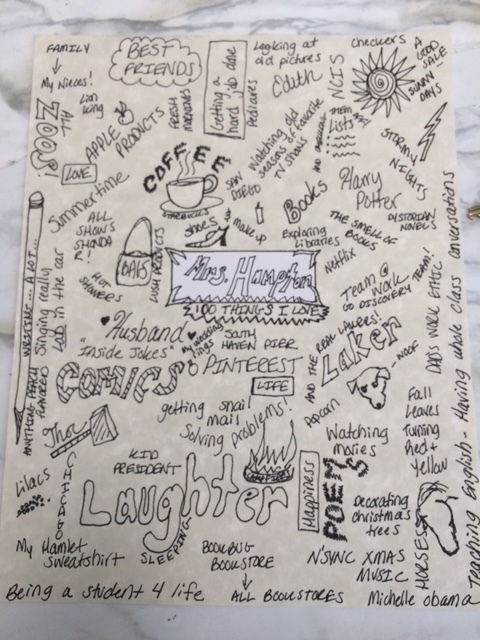 FAMILY
My Nieces!
BEST
FRIENDS
Getting a
hard job done
Pedicures
Looking at
old pictures
Edith
NCIS
Checkers
A
GOOD
SALE
SUNNY
DAYS
ALL
ZOOS!
Lion
King
APPLE
PRODUCTS
FRESH
Watching old
seasons of favorite
TV shows
Lists
STORMY
NIGHTS
LOVE
COFFEE
STARBUCKS
SAN
DIEGO
Books
Harry
Potter
DISTORIAN
NOVELS
Summertime
ALL
SHOWS
SHONDA
R!
BAGS
LUSH PRODUCTS
shoes
&
make up
Exploring
Libraries
THE SMELL OF
BOOKS
Netflix
HOT
SHOWERS
WRITING... A LOT...
Singing really
Loud in the car
Mrs. Hampton
100 THINGS I LOVE
Team @
WORK
GO DISCOVERY TEAM!
DAD'S WORK ETHIC
Husband
"Inside Jokes"
My wedding
rings
SOUTH
HAVEN PIER
PINTEREST
AND THE REAL LAKERS!
Laker
WOOF
COMICS
LIFE
getting snail
mail
Solving problems!
Popcorn
ANYTHING PEACH
FLAVORED
Thor
Watching
movies
Fall
Leaves
Turning
Red +
Yellow
KID
PRESIDENT
CAMPFIRES
Laughter
Happiness
POEMS
Lilacs
CHICAGO
Decorating
christmas
trees
HORSES
My Hamlet
Sweatshirt
SLEEPING
BOOKBUG
BOOKSTORE
ALL BOOKSTORES
N'SYNC XMAS
MUSIC
Being a student 4 life
Michelle Obama
Teaching English - Having whole class conversations